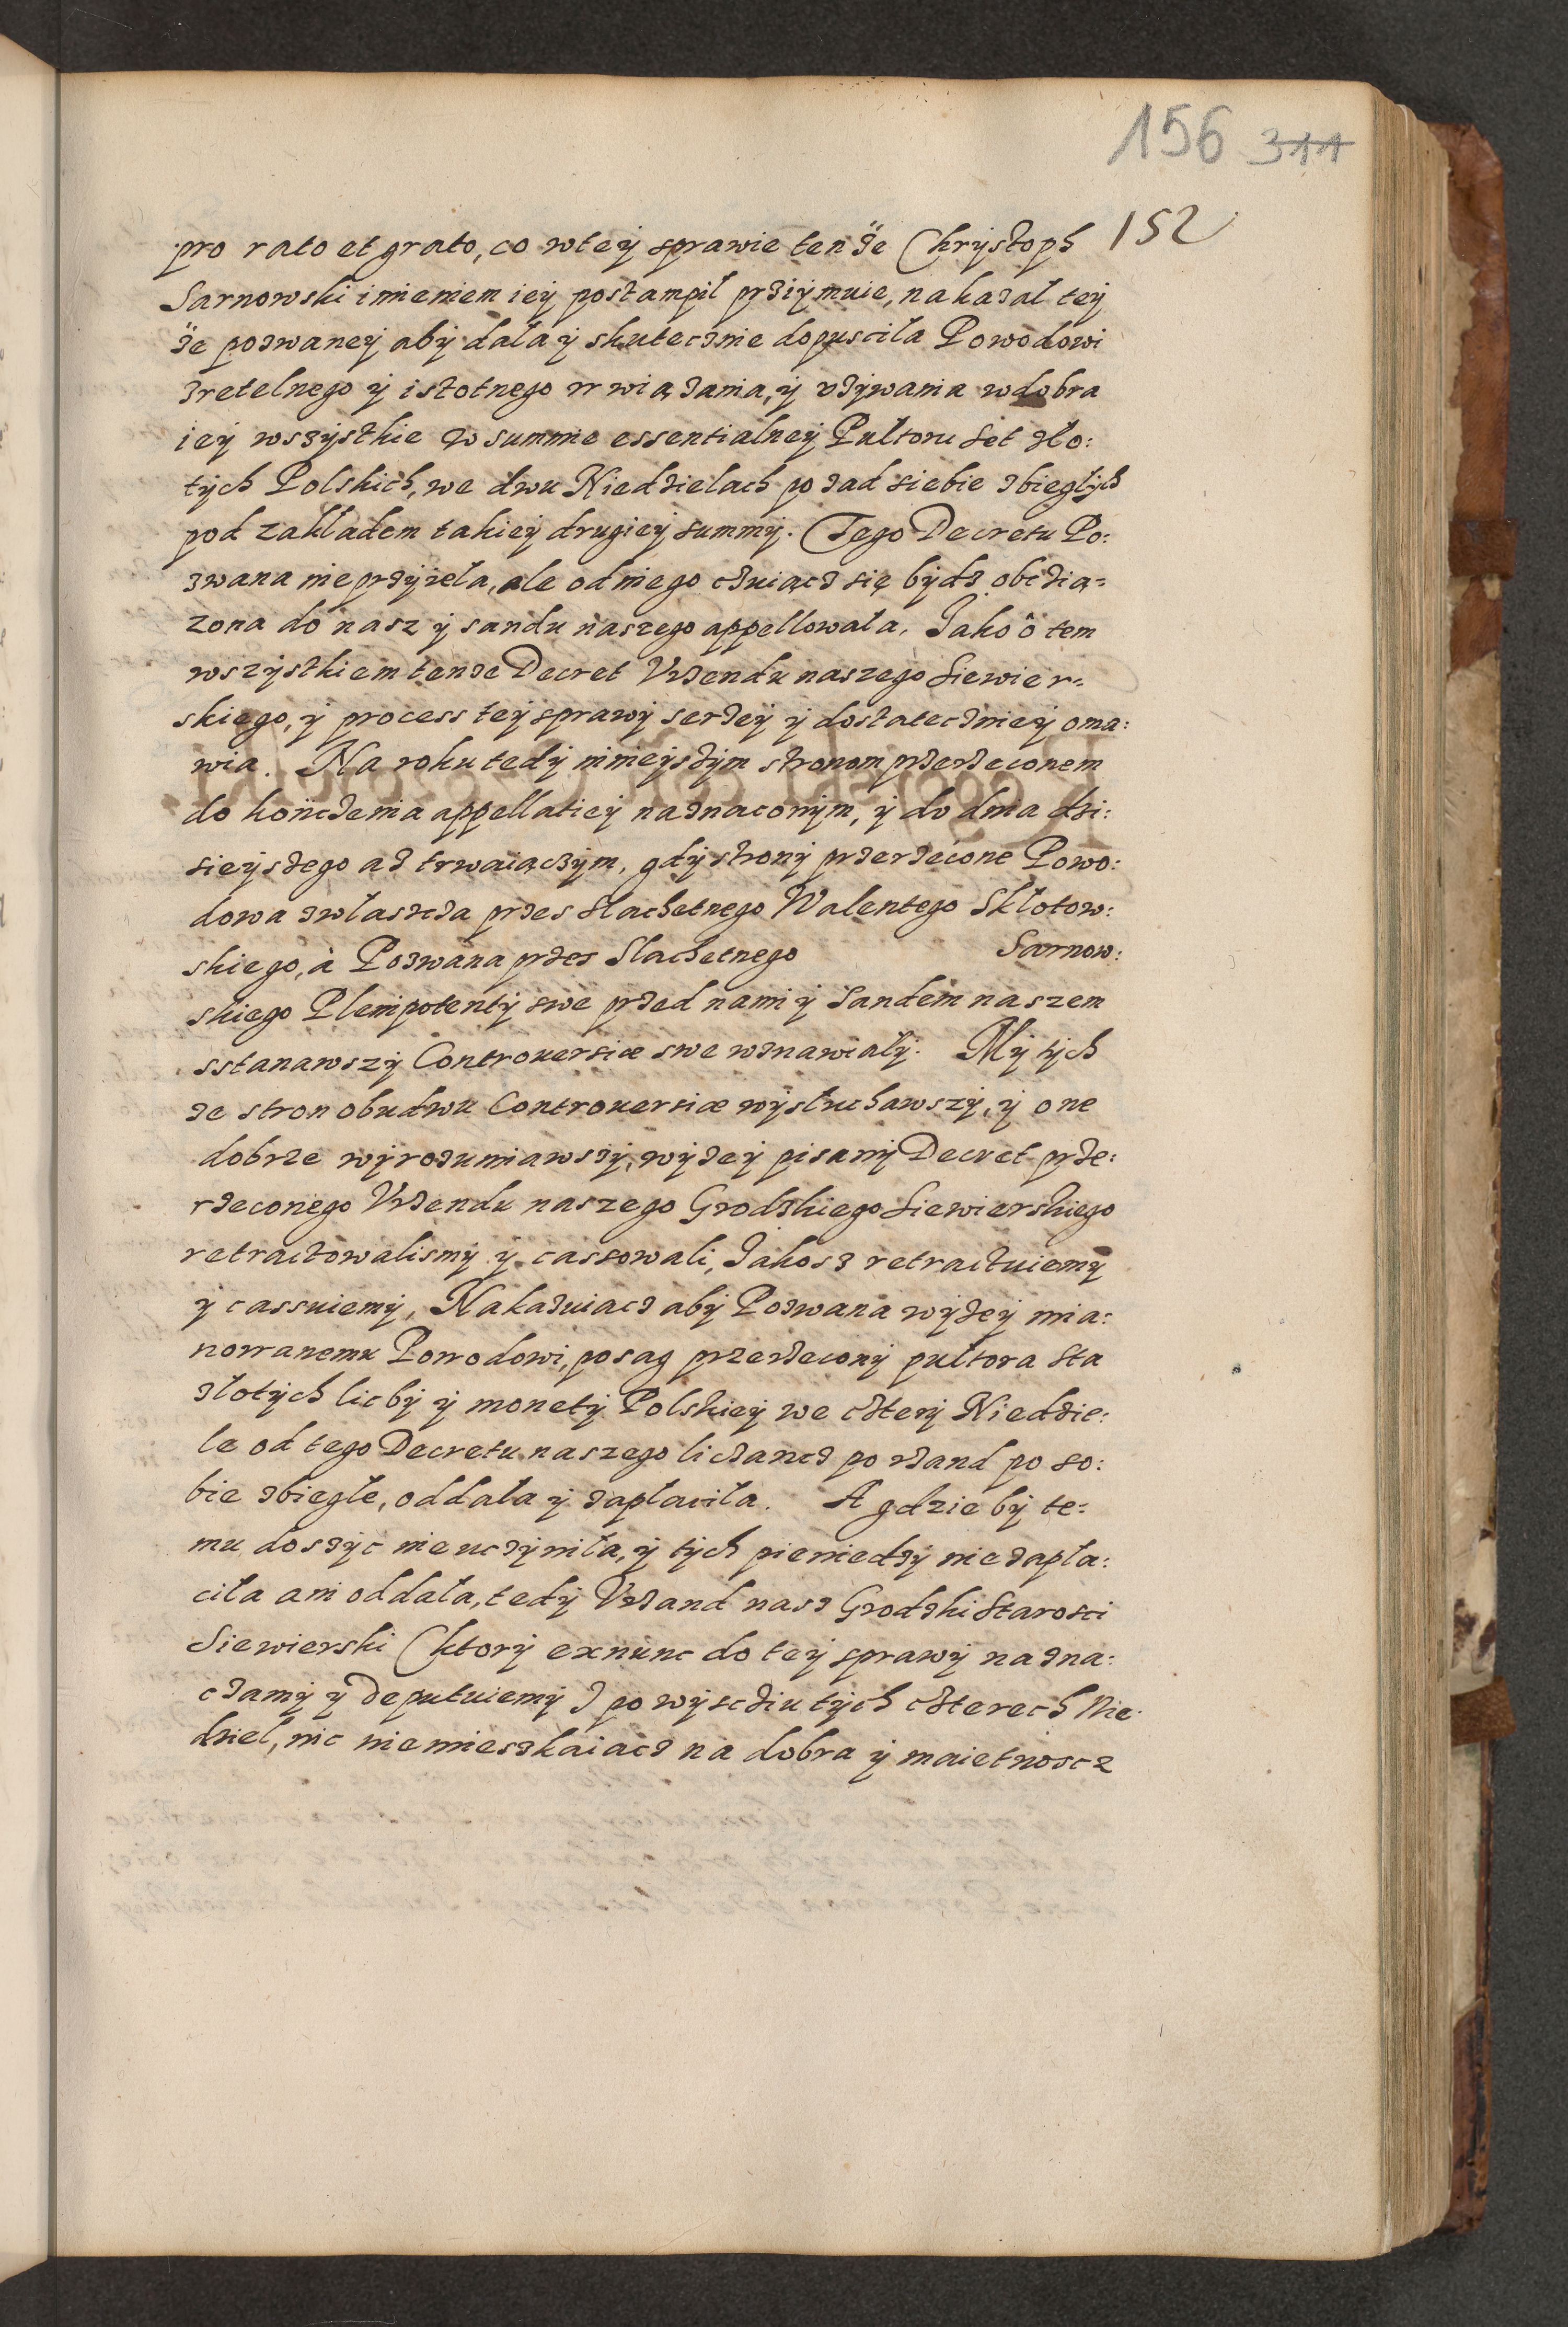 156 311
152
pro rato et grato, co wteÿ sprawie tenze Chrÿstoph
Sarnowski imieniem ieÿ postampil przÿimuie, nakazal teÿ
ze pozwaneÿ abÿ dala ÿ skutecznie dopuscila Powodowi
zretelnego ÿ istotnego wwiązania, ÿ vzÿwania wdobra
ieÿ wszÿstkie w summie essentialneÿ Pultoru set zło:
tÿch Polskich, we dwu Niedzielach po zad siebie zbiegłÿch
pod zakładem takieÿ drugieÿ summÿ. Tego Decretu Po:
zwana nie przÿięła, ale od niego czuiącz się bÿdz obczią=
zona do nasz ÿ sandu naszego appellowała, Jako o tem
wszÿstkiem tenze Decret Vrzendu naszego Siewier=
skiego, ÿ process teÿ sprawÿ serzeÿ ÿ dostatecznieÿ oma:
wia. Na roku tedÿ ninieÿszÿm stronom przerzeconem
do konczenia appellatieÿ naznaconÿm, ÿ do dnia dzi:
sieÿszego az trwaiączÿm, gdÿ stronÿ przerzecone Powo:
dowa zwłaszcza przes Slachetnego Walentego Skłotow:
skiego, à Pozwana przes Slachetnego Sarnow:
skiego Plenipotentÿ swe przed nami ÿ Sandem naszem
sstanawszÿ Controuersiæ swe wznawiałÿ. Mÿ tÿch
ze stron obudwu Controuersiæ wÿsłuchawszÿ, ÿ one
dobrze wÿrozumiawszÿ, wÿzeÿ pisanÿ Decret prze:
rzeconego Vrzendu naszego Grodzkiego Siewierskiego
retractowalismÿ ÿ cassowali, Jakosz retractuiemÿ
ÿ cassuiemÿ, Nakazuiacz abÿ Pozwana wÿzeÿ mia:
nowanemu Powodowi, posag przerzeconÿ pułtora sta
złotÿch licbÿ ÿ monetÿ Polskieÿ we czterÿ Niedzie:
le od tego Decretu naszego liczancz po rzand po so:
bie zbiegłe, oddała ÿ zapłaciła. A gdzie bÿ te=
mu doszÿc nie uczÿniła, ÿ tÿch pieniedzÿ nie zapła:
ciła ani oddała, tedÿ Vrzand nasz Grodzki Starosci
Siewierski (ktorÿ exnunc do teÿ sprawÿ nazna:
czamÿ ÿ Deputuiemÿ) po wÿscziu tÿch czterech Nie:
dziel, nic niemieszkaiacz na dobra ÿ maietnoscz